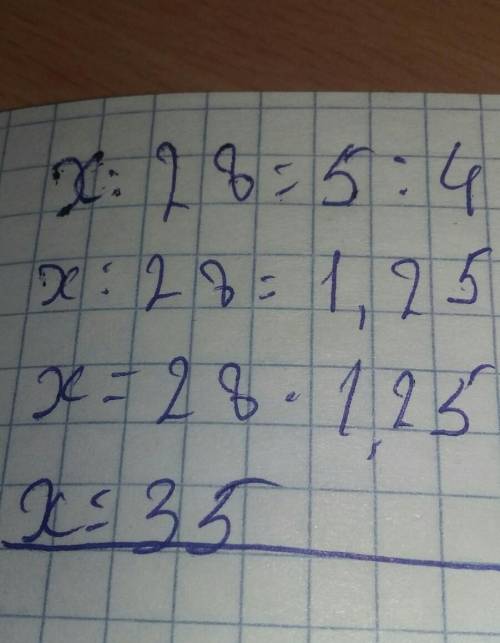 x : 28 = 5 : 4
x : 28 = 1,25
x = 28 · 1,25
x = 35